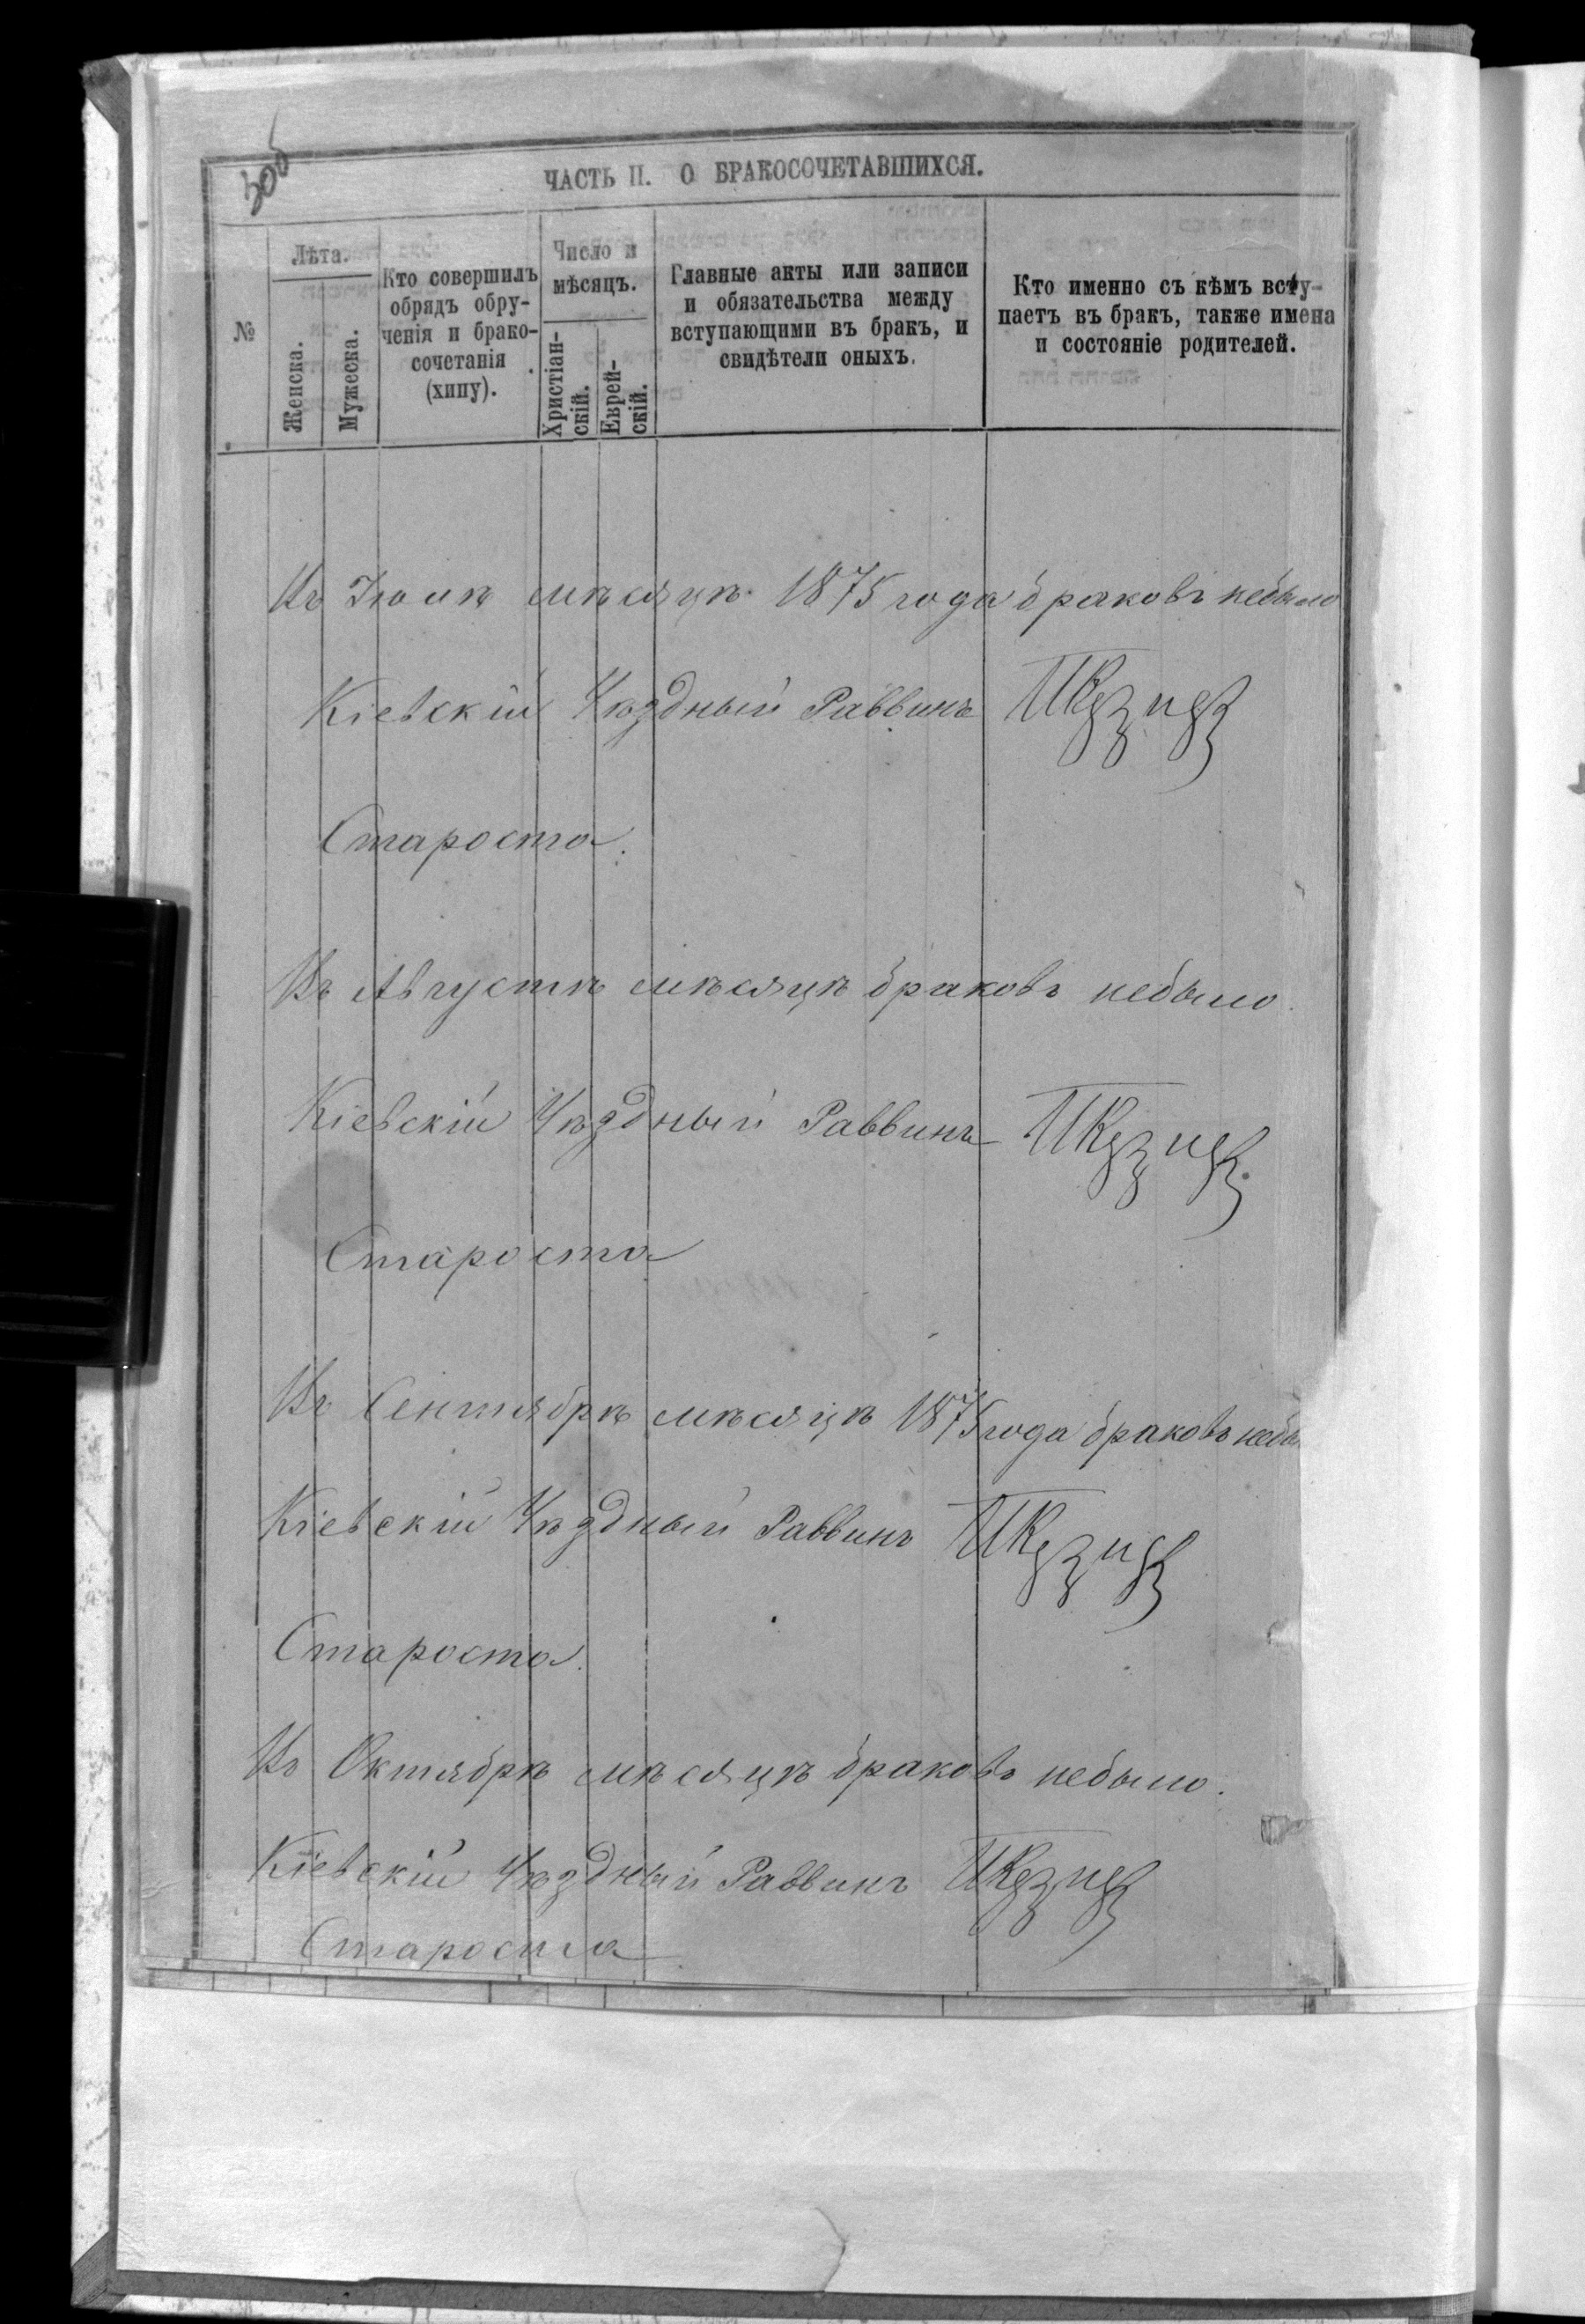 ЧАСТЬ II. О БРАКОСОЧЕТАВШИХСЯ.
№
Лѣта.
Женска.
Мужеска.
Кто совершилъ
обрядъ обру-
ченія и брако-
сочетанія
(хипу).
Число и
мѣсяцъ.
Христіан-
скій.
Еврей-
скій.
Главные акты или записи
и обязательства между
вступающими въ бракъ, и
свидѣтели оныхъ.
Кто именно съ кѣмъ всту-
паетъ въ бракъ, также имена
и состояніе родителей.
Въ Іюлѣ мѣсяцѣ 1875 года браковъ небыло
Кіевскій Уѣздный Раввинъ
Староста
Въ Августѣ мѣсяцѣ браковъ небыло.
Кіевскій Уѣздный Раввинъ
Староста
Въ Сентябрѣ мѣсяцѣ 1875 года браковъ небы
Кіевскій Уѣздный Раввинъ
Староста.
Въ Октябрѣ мѣсяцѣ браковъ небыло.
Кіевскій Уѣздный Раввинъ
Староста